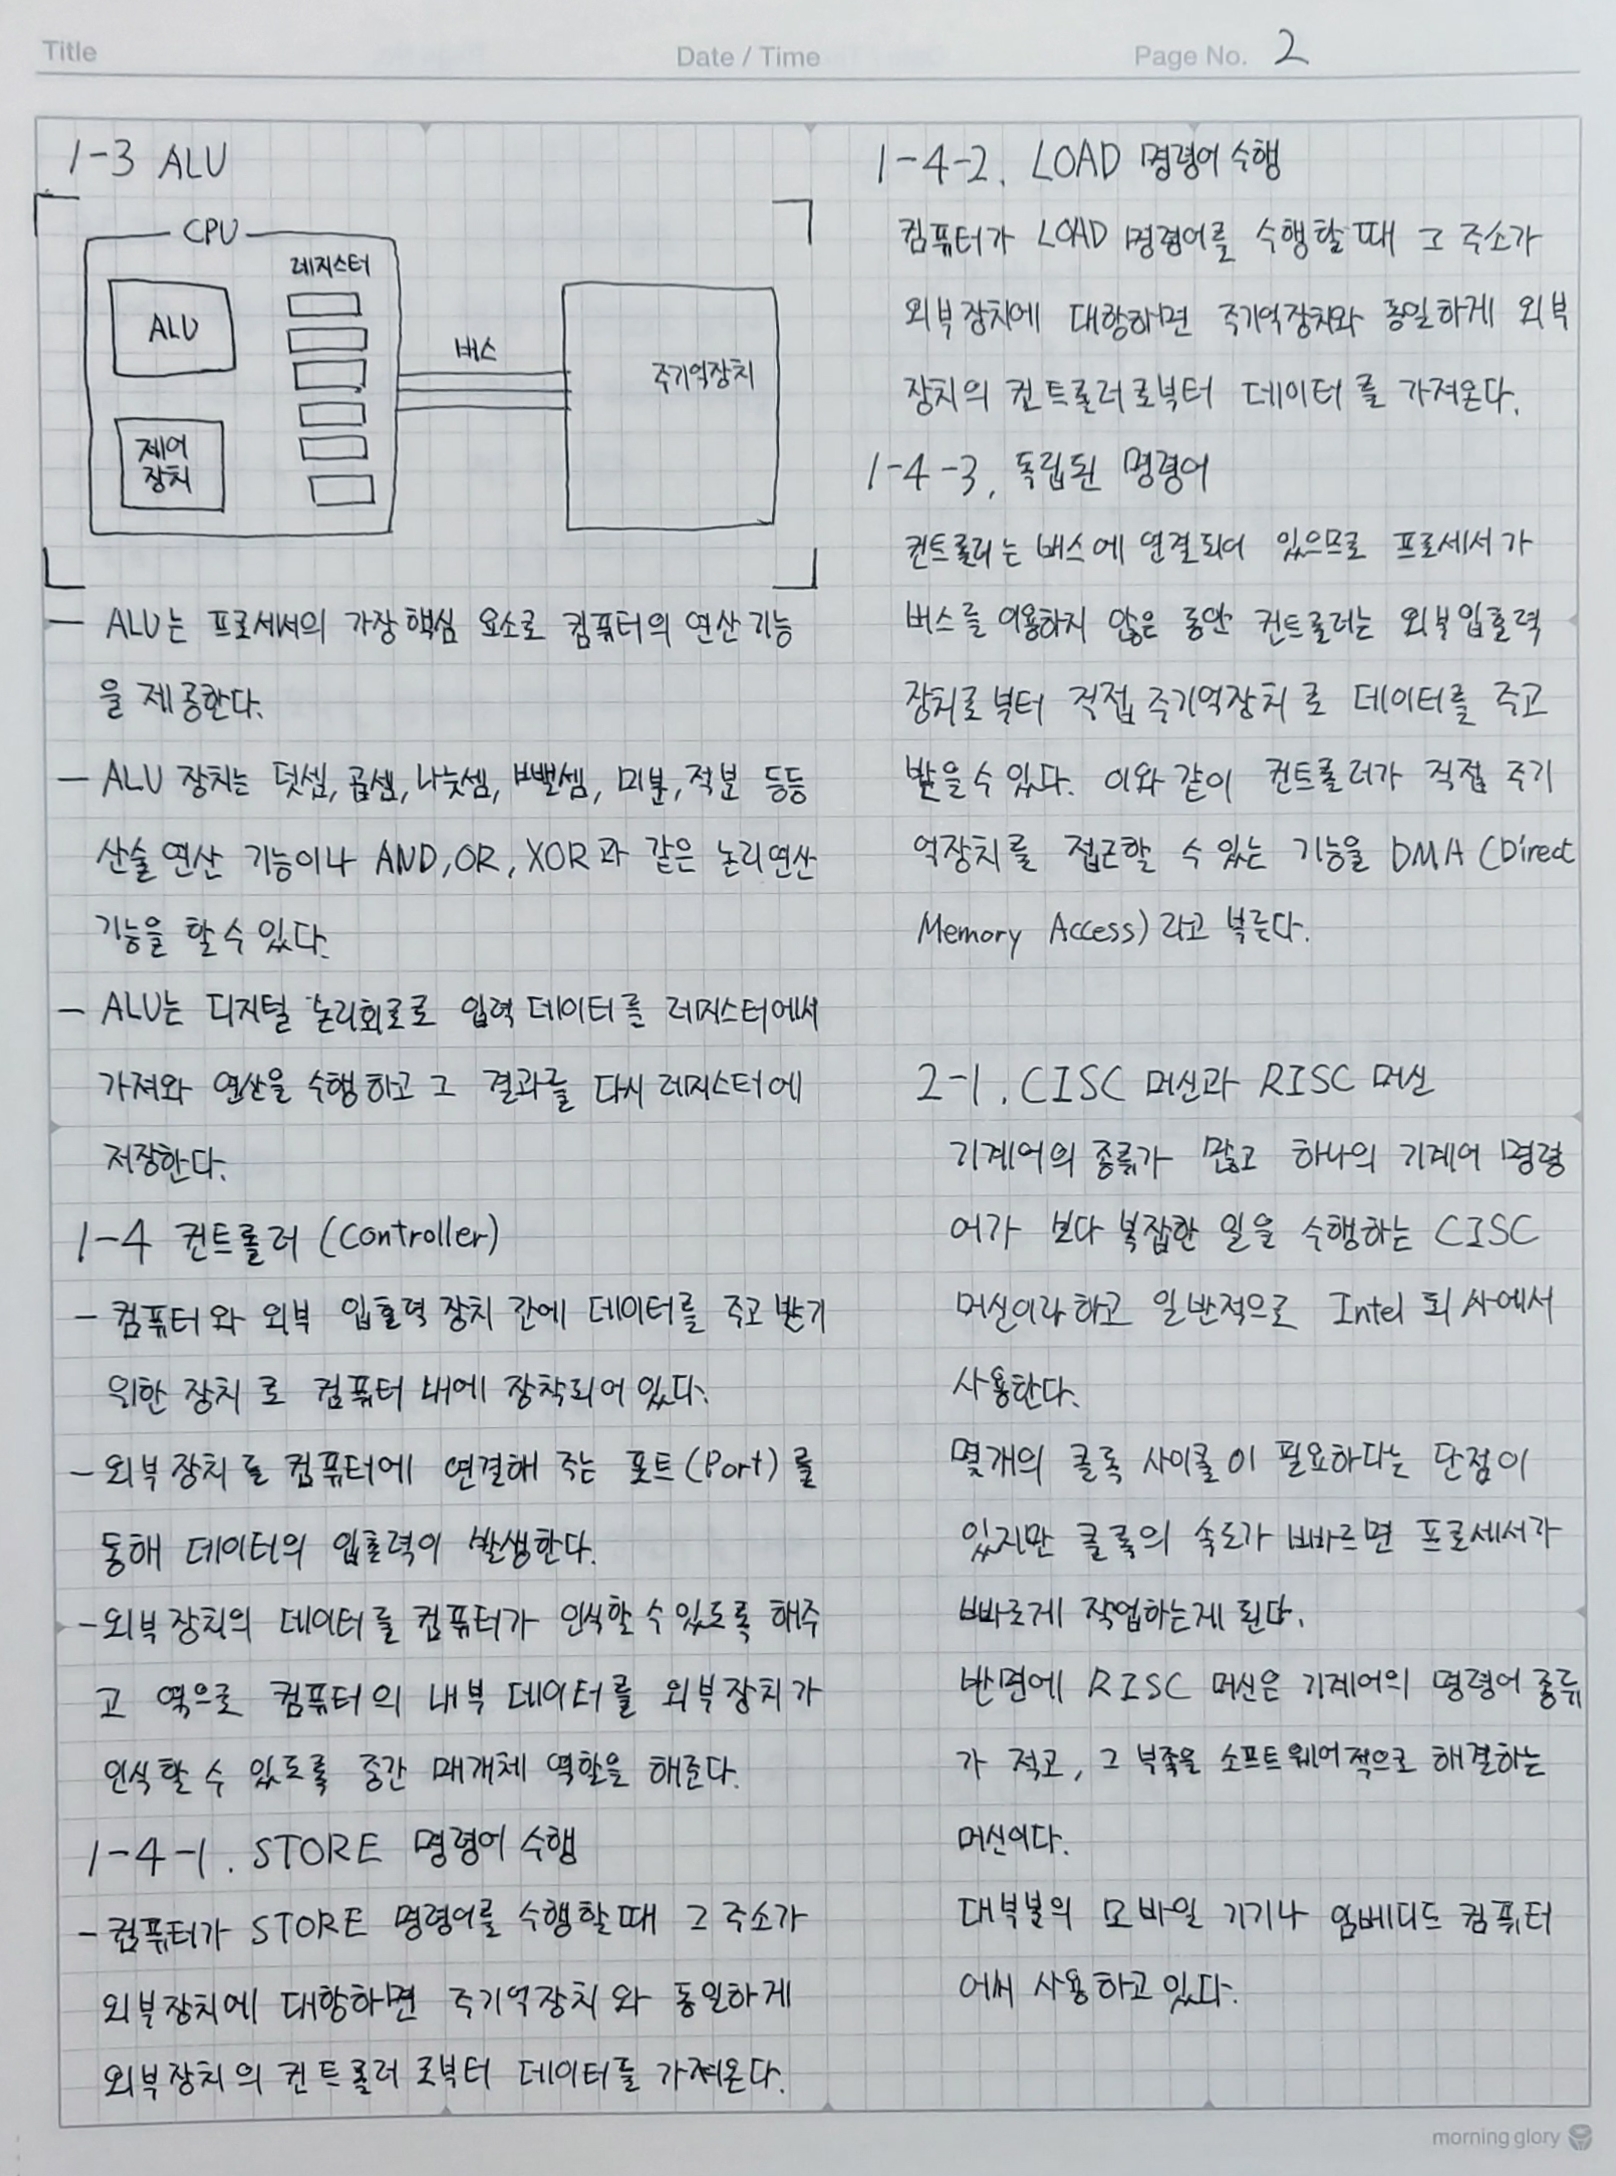 Title
Date / Time
Page No. 2
1-3 ALU
CPU
레지스터
ALU
버스
주기억장치
제어
장치
— ALU는 프로세서의 가장 핵심 요소로 컴퓨터의 연산 기능
을 제공한다.
— ALU 장치는 덧셈, 곱셈, 나눗셈, 뺄셈, 미분, 적분 등등
산술 연산 기능이나 AND, OR, XOR과 같은 논리연산
기능을 할 수 있다.
— ALU는 디지털 논리회로로 입력 데이터를 레지스터에서
가져와 연산을 수행하고 그 결과를 다시 레지스터에
저장한다.
1-4 컨트롤러 (Controller)
- 컴퓨터와 외부 입출력 장치 간에 데이터를 주고 받기
위한 장치로 컴퓨터 내에 장착되어 있다.
- 외부 장치를 컴퓨터에 연결해 주는 포트(Port)를
통해 데이터의 입출력이 발생한다.
- 외부 장치의 데이터를 컴퓨터가 인식할 수 있도록 해주
고 역으로 컴퓨터의 내부 데이터를 외부장치가
인식할 수 있도록 중간 매개체 역할을 해준다.
1-4-1. STORE 명령어 수행
- 컴퓨터가 STORE 명령어를 수행할 때 그 주소가
외부장치에 대항하면 주기억장치와 동일하게
외부장치의 컨트롤러로부터 데이터를 가져온다.
1-4-2. LOAD 명령어 수행
컴퓨터가 LOAD 명령어를 수행할 때 그 주소가
외부 장치에 대항하면 주기억장치와 동일하게 외부
장치의 컨트롤러로부터 데이터를 가져온다.
1-4-3. 독립된 명령어
컨트롤러는 버스에 연결되어 있으므로 프로세서가
버스를 이용하지 않은 동안 컨트롤러는 외부입출력
장치로부터 직접 주기억장치로 데이터를 주고
받을 수 있다. 이와 같이 컨트롤러가 직접 주기
억장치를 접근할 수 있는 기능을 DMA (Direct
Memory Access)라고 부른다.
2-1. CISC 머신과 RISC 머신
기계어의 종류가 많고 하나의 기계어 명령
어가 보다 복잡한 일을 수행하는 CISC
머신이라 하고 일반적으로 Intel 회사에서
사용한다.
몇개의 클록 사이클이 필요하다는 단점이
있지만 클록의 속도가 빠르면 프로세서가
빠르게 작업하는게 된다.
반면에 RISC 머신은 기계어의 명령어 종류
가 적고, 그 부족을 소프트웨어적으로 해결하는
머신이다.
대부분의 모바일 기기나 임베디드 컴퓨터
어써 사용하고 있다.
morning glory